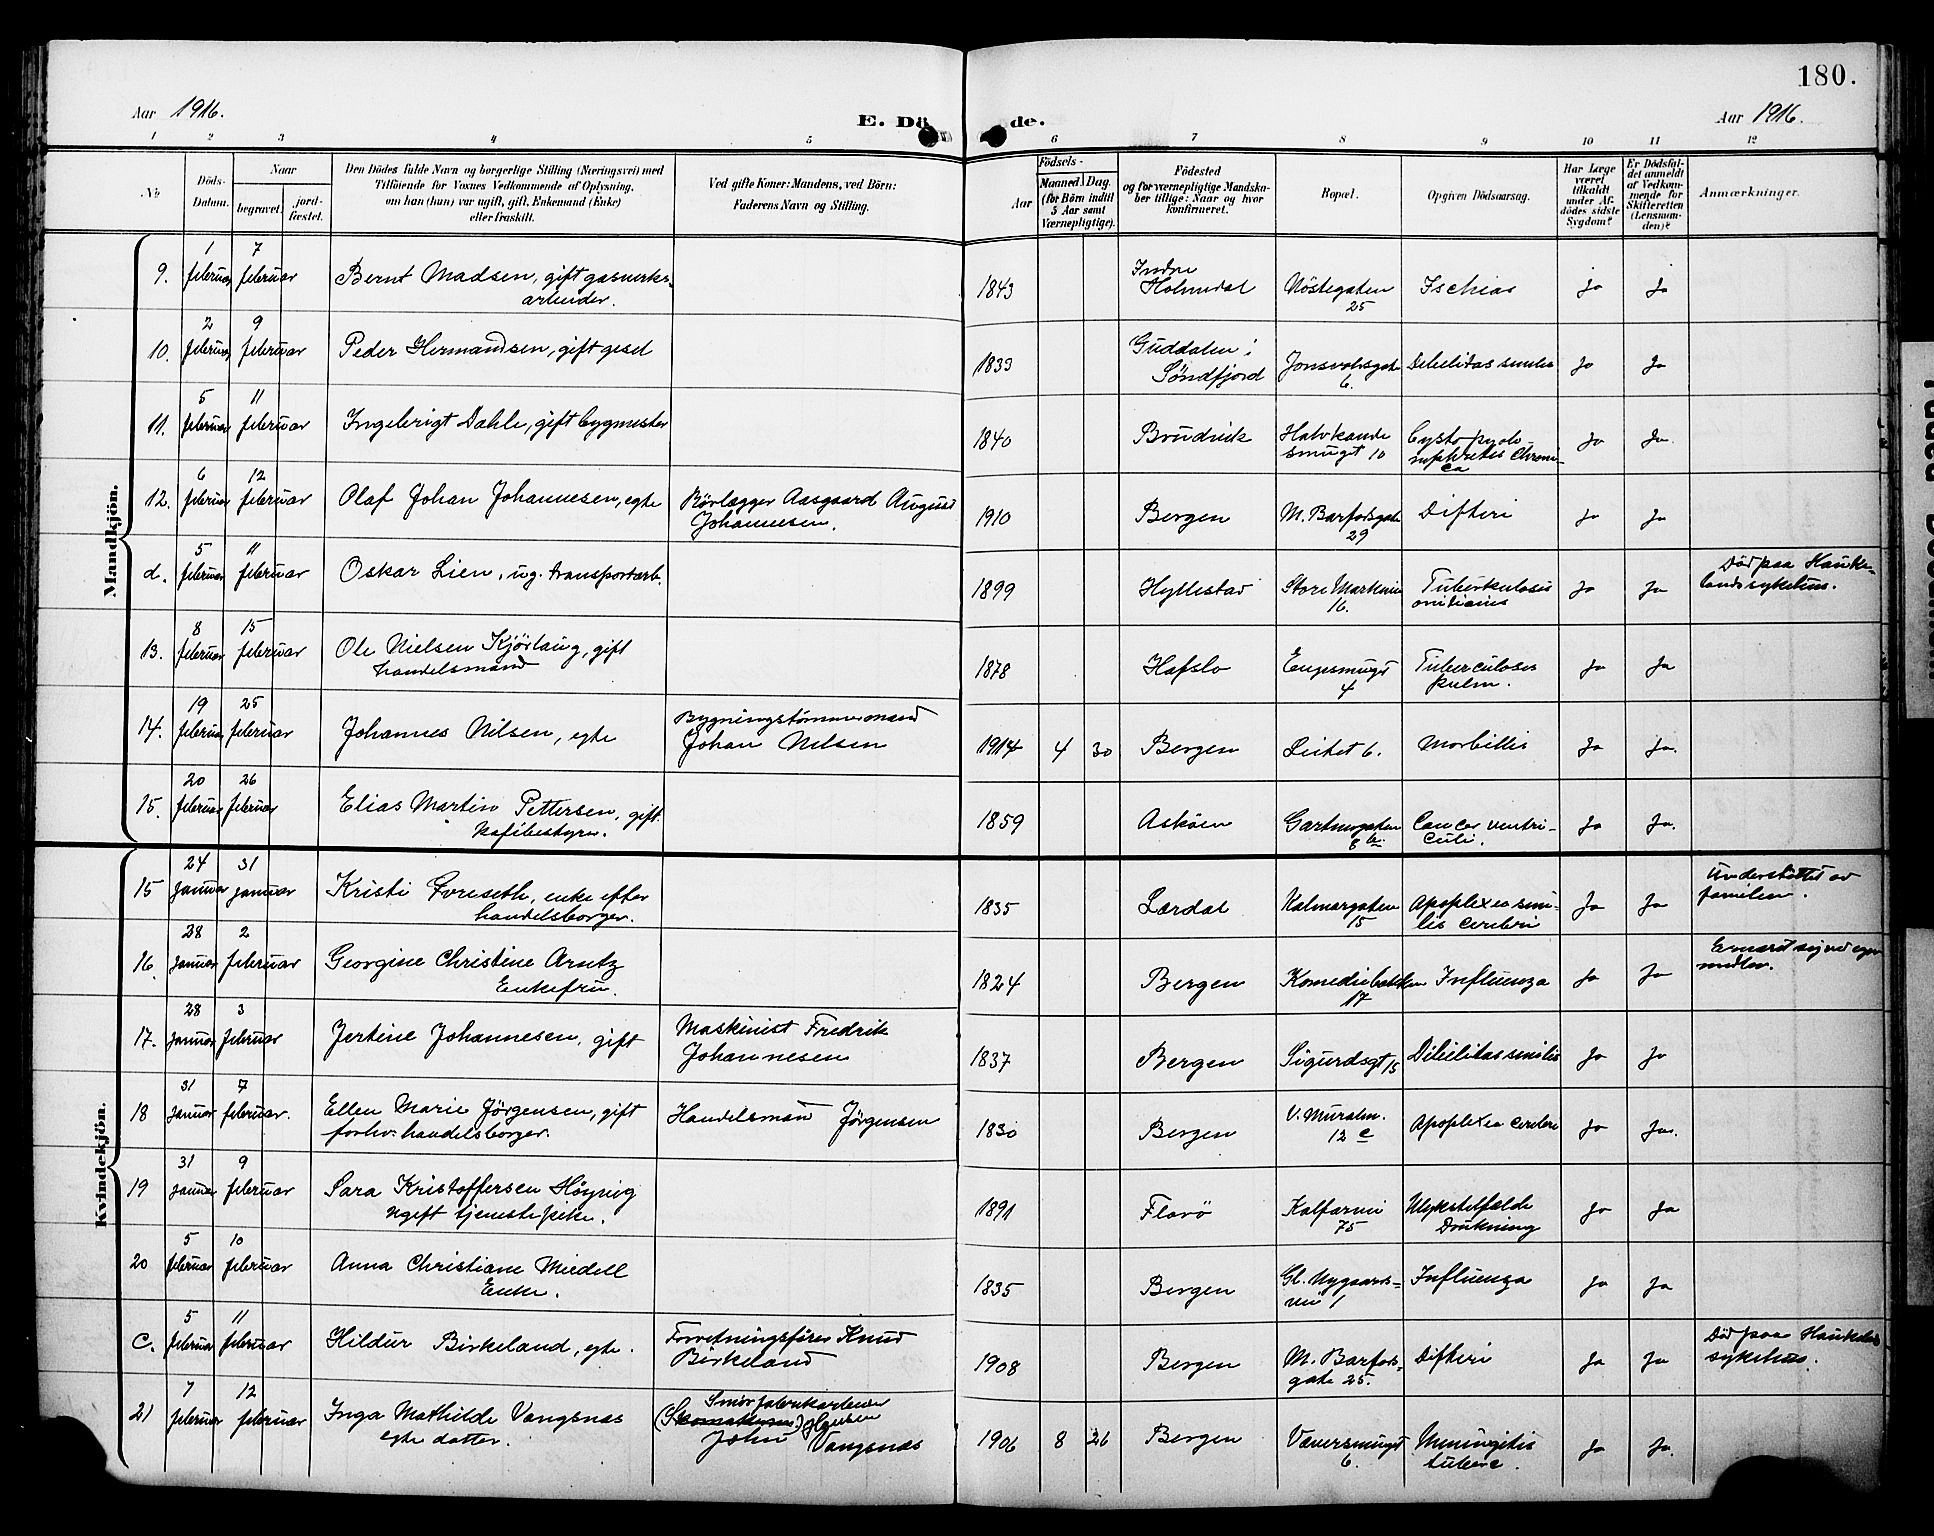 180.
Aar 1916.
E. Dö de.
Aar 1916.
1 2 3 4 5 6 7 8 9 10 11 12
No
Döds-
Datum.
Naar
begravet.
jord-
fæstet.
Den Dödes fulde Navn og borgerlige Stilling (Næringsvei) med
Tilföiende for Voxnes Vedkommende af Oplysning,
om han (hun) var ugift, gift, Enkemand (Enke)
eller fraskilt.
Ved gifte Koner: Mandens, ved Börn:
Faderens Navn og Stilling.
Födsels-
Aar
Maaned. Dag.
(for Börn indtil
5 Aar samt
Værnepligtige).
Födested
og for værnepligtige Mandska-
ber tillige: Naar og hvor
konfirmeret.
Bopæl.
Opgiven Dödsaarsag.
Har Læge
været
tilkaldt
under Af-
dödes sidste
Sygdom?
Er Dödsfal-
det anmeldt
af Vedkom-
mende for
Skifteretten
(Lensman-
den)?
Anmærkninger.
Mandkjön.
9. 1 februar 7 februar Bernt Madsen, gift gasverks-
arbeider.
1843 Indre
Holmedal Nöstegaten
25 Ischias ja ja
10. 2 februar 9 februar Peder Hermandsen, gift gesel
1839 Guddalen i
Söndfjord Jonsvolsgate
6. Debilitas senilis Ja Ja
11. 5 februar 11 februar Ingebrigt Dahle, gift bygmester
1840 Bruvik Halvkande
smuget 10 Cysto pyelo-
nephretis chroni-
ca Ja Ja.
12. 6 februar 12 februar Olaf Johan Johannesen, egte Rörlægger Aasgaard August
Johannesen.
1910 Bergen M. Barfodsgate
29 Difteri Ja Ja
d. 5 februar 11 februar Oskar Lien, ug. transportarb.
1899 Hyllestad Store Markevei
16. Tuberkulosis
Ja Ja Död paa Hauke-
landssykehus.
13. 8 februar 15 februar Ole Nielsen Kjörlaug, gift
handelsmand
1878 Hafslo Engesmuget
4 Tuberculosis
pulm. Ja Ja
14. 19 februar 25 februar Johannes Nilsen, egte Bygningstömmermand
Johan Nilsen
1914 4 30 Bergen Leitet 6. Morbillis Ja Ja.
15. 20 februar 26 februar Elias Martin Pettersen, gift.
kafébestyrer.
1859 Asköen Gartnergaten
8 Cancer ventri-
culi. Ja Ja.
Kvindekjön.
15 24 januar 31 januar Kristi Foreseth, enke efter
handelsborger.
1835 Lærdal Kalmargaten
15 Apoplexea seni-
lis cerebri Ja Ja Understöttet av
familien.
16. 28 januar 2 februar Georgine Christine Arntz
Enkefru.
1824 Bergen Komediebakken
17 Influenza Ja Ja Ernæret sig ved egne
midler.
17. 28 januar 3 februar Jertine Johannesen, gift Maskinist Fredrik
Johannesen
1837 Bergen Sigurdsgt 15 Debilitas senilis Ja Ja
18 31 januar 7 februar. Ellen Marie Jörgensen, gift
forhv. handelsborger. Handelsmand Jörgensen
1830 Bergen V. Muralm.
12 c Apoplexea cerebri Ja Ja.
19 31 januar 9 februar Sara Kristoffersen Höyvig
ugift tjenestepike.
1891 Florö Kalfarvei
75 Ulykstilfælde
Drukning Ja Ja
20 5 februar 10 februar Anna Christiane Miedell
Enke.
1835 Bergen Gl. Nygaards-
vei 1 Influenza Ja Ja
C. 5 februar 11 februar Hildur Birkeland, egte. Forretningsförer Knud
Birkeland
1908 Bergen M. Barfods-
gate 25. Difteri Ja Ja Död paa Haukelands
sykehus.
21 7 februar 12 februar Inga Mathilde Vangsnas
egte datter. Smörfabrikarbeider
John Hansen
Vangsnas
1906 8 26 Bergen Væversmuget
6. Meningitis
tuberc. Ja Ja.